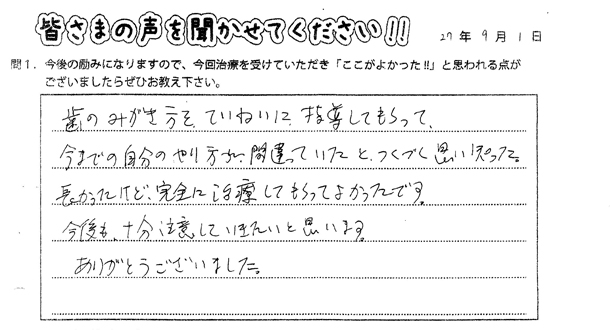 皆さまの声を聞かせてください!!
27年 9月 1日
問1. 今後の励みになりますので、今回治療を受けていただき「ここがよかった!!」と思われる点が
ございましたらぜひお教え下さい。
歯のみがき方を、ていねいに、指導してもらって、
今までの自分のやり方が、間違っていたと、つくづく思い知った。
長かったけど、完全に治療してもらってよかったです。
今後も、十分注意していきたいと思います。
ありがとうございました。